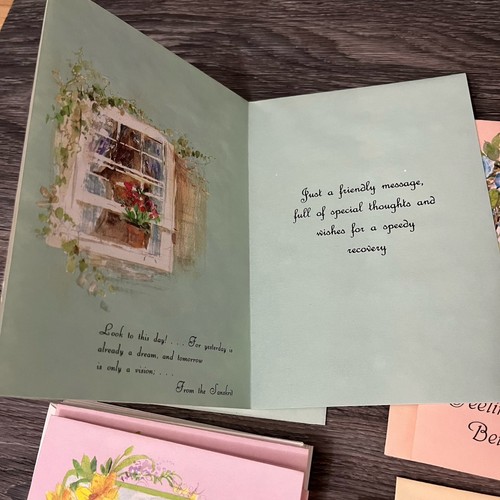 Look to this day! . . . For yesterday is
already a dream, and tomorrow
is only a vision; . . .
From the Sanskrit
Just a friendly message,
full of special thoughts and
wishes for a speedy
recovery